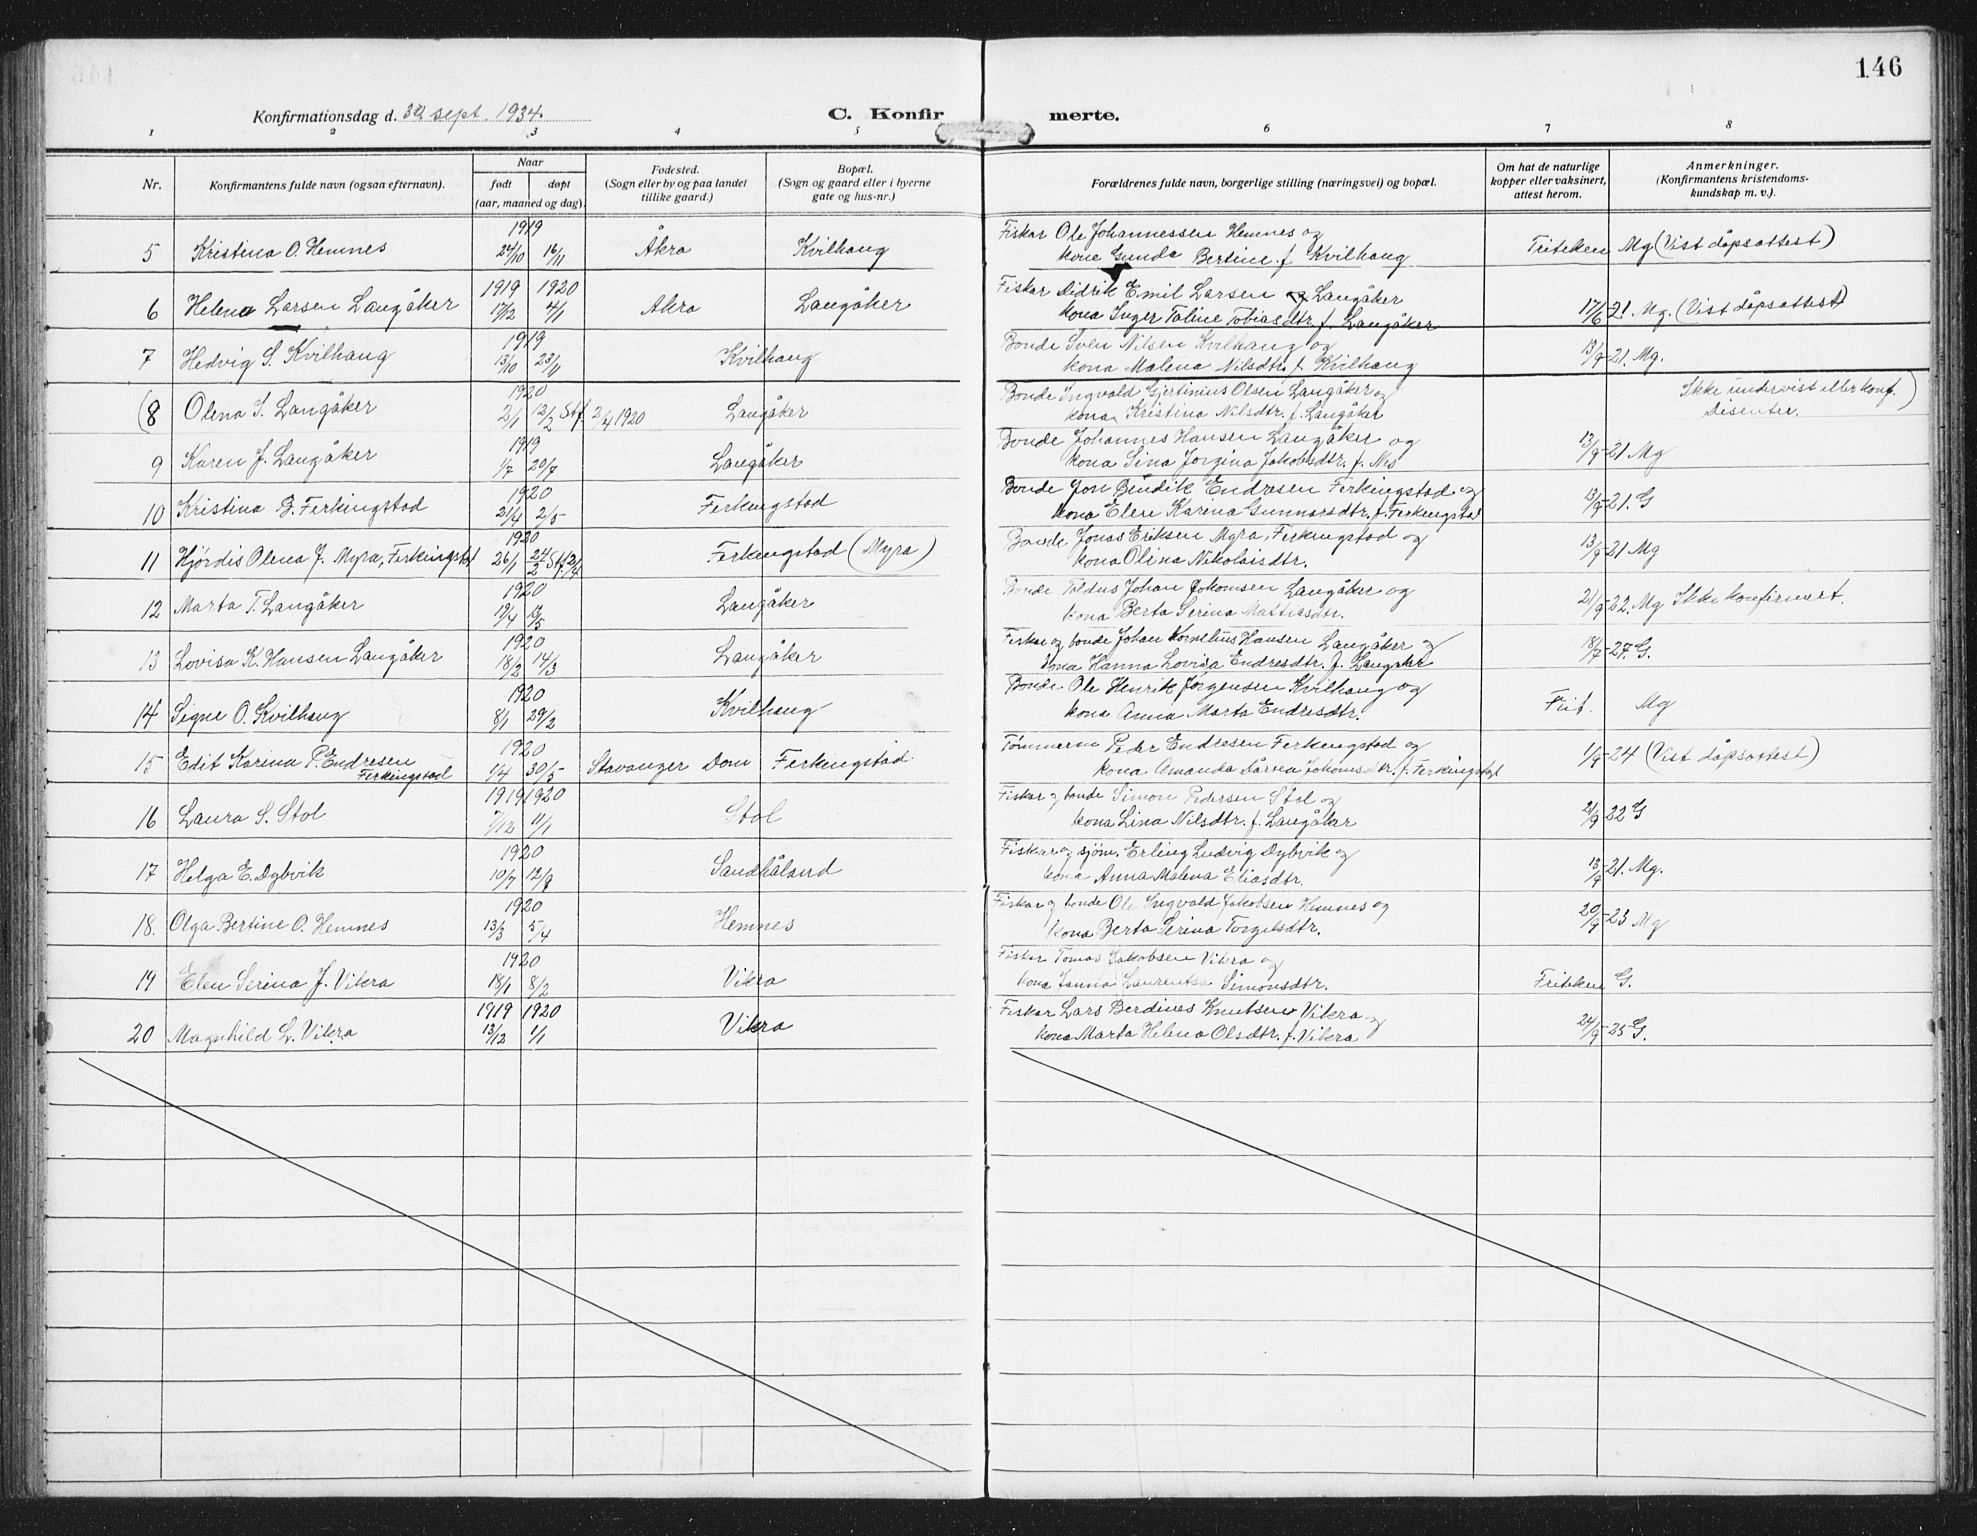 146
Konfirmationsdag d. 30 sept. 1934. C. Konfirmerte.
1 2 3 4 5 6 7 8
Nr. Konfirmantens fulde navn (ogsaa efternavn). Naar født døpt (aar, maaned og dag). Fødested. (Sogn eller by og paa landet tillike gaard.) Bopæl. (Sogn og gaard eller i byerne gate og hus-nr.) Forældrenes fulde navn, borgerlige stilling (næringsvei) og bopæl. Om hat de naturlige kopper eller vaksinert, attest herom. Anmerkninger. (Konfirmantens kristendomskundskap m. v.).
1919 Fiskar Ole Johannessen Hemnes og
5 Kristina O. Hemnes 24/10 16/11 Åkra Kvilhaug kone Gunda Bertine f. Kvilhaug Friteken Mg (Vist dåpsattest)
1919 1920 Fiskar Didrik Emil Larsen Langåker
6 Helena Larsen Langåker 17/12 4/1 Åkra Langåker kona Inger Taline Tobiasdtr. f. Langåker 17/6 21. Mg. (Vist dåpsattest)
1919 Bonde Sven Nilsen Kvilhaug og
7 Hedvig S. Kvilhaug 13/10 23/11 Kvilhaug kona Malena Nilsdtr. f. Kvilhaug 13/9-21. Mg.
1920 Bonde Ingvald Gjertinius Olsen Langåker og Ikke undervist eller konf.)
(8 Olena I. Langåker 2/1 12/2 Stf. 2/4 1920 Langåker kona Kristina Nilsdtr. f. Langåker Disenter.
1919 Bonde Johannes Hansen Langåker og
9 Karen J. Langåker 1/7 20/7 Langåker kona Sina Jorgina Jakobsdtr. f. Nes 13/9-21 Mg
1920 Bonde Jon Bendik Endresen Ferkingstad og
10 Kristina B. Ferkingstad 21/4 2/5 Ferkingstad kona Elen Karena Gunnarsdtr. f. Ferkingstad 13/9-21. G
1920 Bonde Jonas Eriksen Myra, Ferkingstad og
11 Hjørdis Olena J. Myra, Ferkingstad 26/1 24/2 Stf. 2/4 Ferkingstad (Myra) kona Olina Nikolaisdtr. 13/9-21 Mg
1920 Bonde Toldus Johan Jokomsen Langåker og
12 Marta T. Langåker 19/4 13/5 Langåker kona Berta Serina Mattiasdtr. 21/9-22. Mg Ikke konfirmert.
1920 Fiskar og bonde Johan Kornelius Hansen Langåker og
13 Lovisa K. Hansen Langåker 18/2 14/3 Langåker kona Hanna Lovisa Endresdtr. f. Langåker 18/7-27. G.
1920 Bonde Ole Henrik Jørgensen Kvilhaug og
14 Signe O. Kvilhaug 8/1 29/2 Kvilhaug kona Anna Marta Endresdtr. Frit. Mg
1920 Tømmerm Peder Endresen Ferkingstad og
15 Edit Karina P. Endresen Ferkingstad 1/4 30/5 Stavanger Dom Ferkingstad kona Amanda Dårtea Jokomsdtr. f. Ferkingstad 11/9-24 (Vist dåpsattest)
1919 1920 Fiskar og bonde Simon Pedersen Stol og
16 Laura S. Stol 7/12 11/1 Stol kona Lina Nilsdtr. f. Langåker 21/9 22 G
1920 Fiskar og sjøm. Erling Ludvig Dybvik og
17 Helga E. Dybvik 10/7 12/9 Sandhåland kona Anna Malena Eliasdtr. 13/9-21. Mg.
1920 Fiskar og bonde Ole Ingvald Jakobsen Hemnes og
18. Olga Bertine O. Hemnes 13/3 5/4 Hemnes kona Berta Serina Torgilsdtr. 20/9-23 Mg
1920 Fiskar Tomas Jakobsen Vikra og
19 Elen Serina J. Vikra 18/1 8/2 Vikra kona Janna Laurentsa Simonsdtr. Friteken G.
1919 1920 Fiskar Lars Berdines Knutsen Vikra og
20 Magnhild L. Vikra 13/12 1/1 Vikra kona Marta Helena Olsdtr. f. Vikra 24/9-25 G.